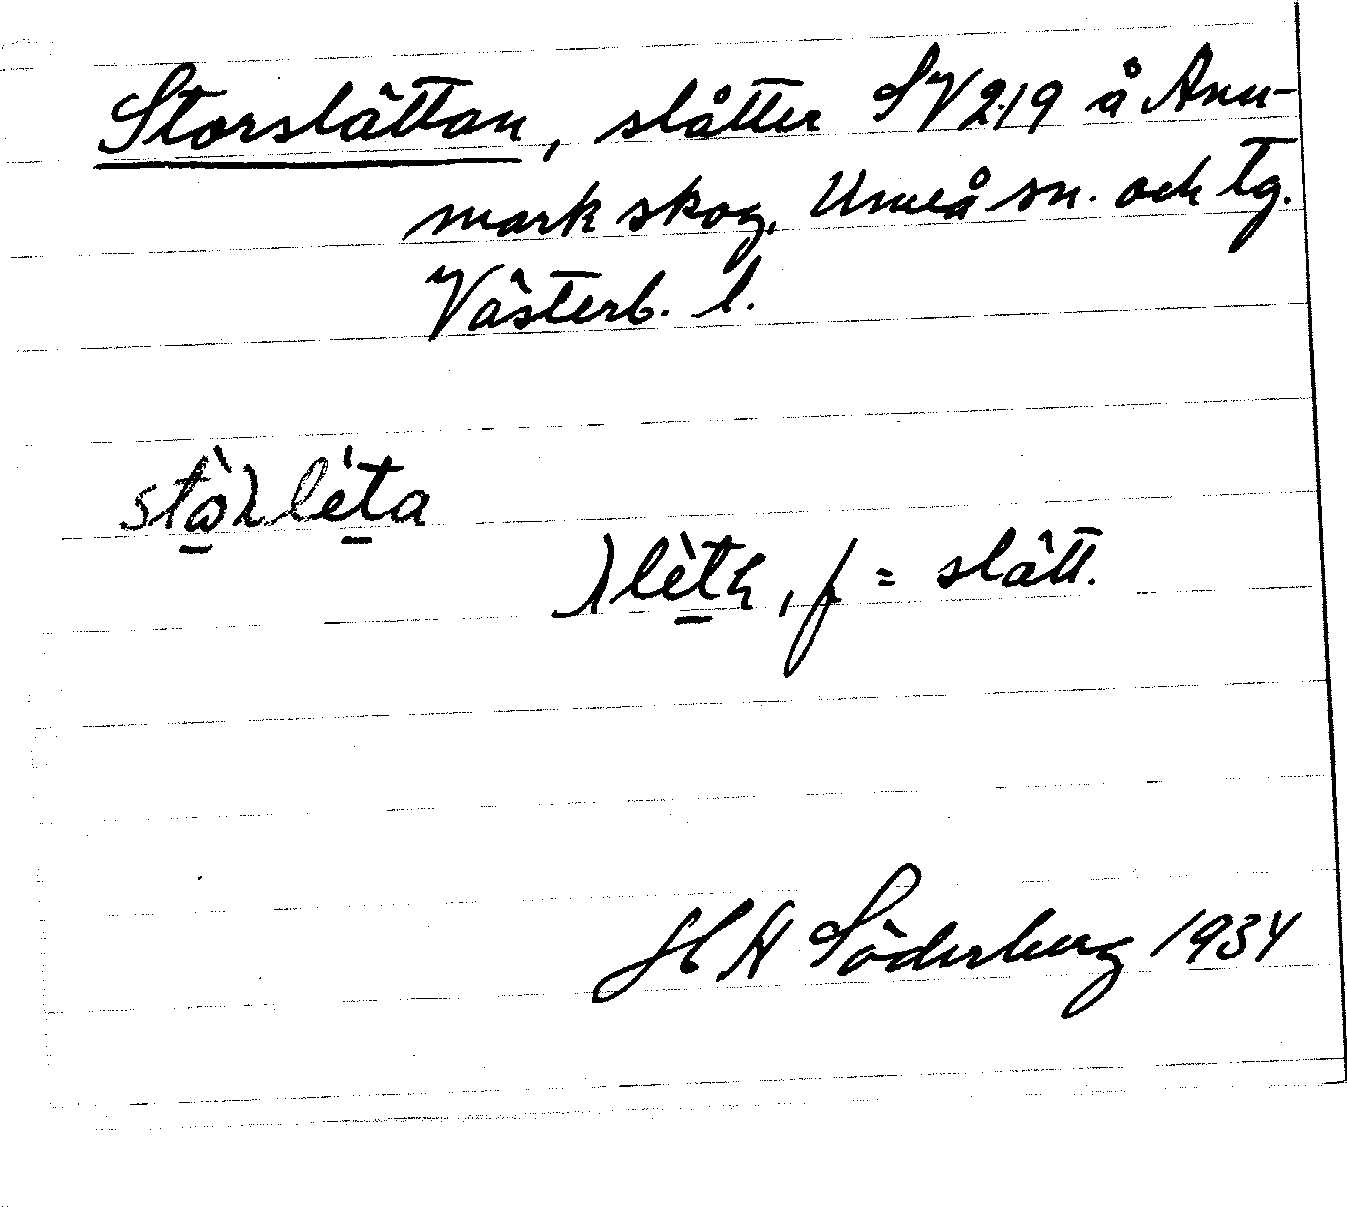 Storslättan, slåtter SV219 å Anu-
mark skog, Umeå sn. och tg.
Västerb. l.
f = slått.
H N Söderberg 1934